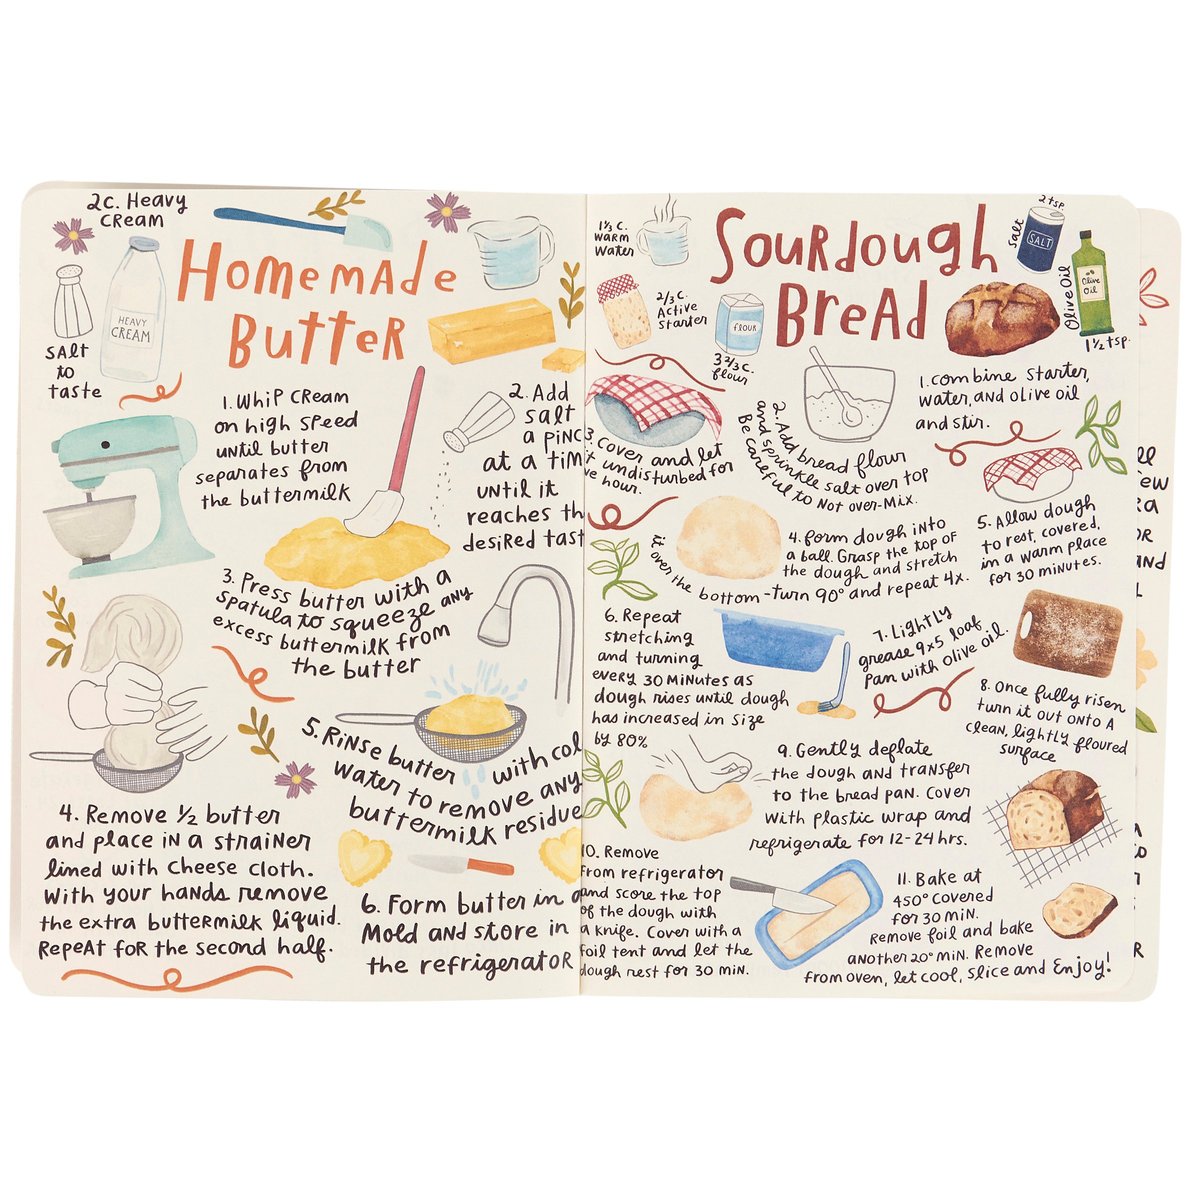 2c. Heavy
Cream
Homemade
Butter
HEAVY
CREAM
salt
to
taste
1. Whip cream
on high speed
until butter
separates from
the buttermilk
2. Add
salt
a pinc
at a tim
until it
reaches th
desired tast
3. Press butter with a
spatula to squeeze any
excess buttermilk from
the butter
4. Remove ½ butter
and place in a strainer
lined with cheese cloth.
With your hands remove
the extra buttermilk liquid.
Repeat for the second half.
5. Rinse butter with col
water to remove any
buttermilk residue
6. Form butter in a
mold and store in
the refrigerator
Sourdough
Bread
1⅓ c.
warm
water
2/3 c.
Active
Starter
FLOUR
3 2/3 c.
flour
2 tsp.
Salt
SALT
Olive Oil
Olive
Oil
1½ tsp.
1. combine starter,
water, and olive oil
and stir.
2. Add bread flour
and sprinkle salt over top
Be careful to not over-mix.
3. Cover and let
t undisturbed for
e hour.
4. Form dough into
a ball. Grasp the top of
the dough and stretch
it over the bottom - turn 90° and repeat 4x.
5. Allow dough
to rest, covered,
in a warm place
for 30 minutes.
6. Repeat
stretching
and turning
every 30 minutes as
dough rises until dough
has increased in size
by 80%
7. Lightly
grease 9x5 loaf
pan with olive oil.
8. Once fully risen
turn it out onto a
clean, lightly floured
surface
9. Gently deflate
the dough and transfer
to the bread pan. Cover
with plastic wrap and
refrigerate for 12-24 hrs.
10. Remove
from refrigerator
and score the top
of the dough with
a knife. Cover with a
foil tent and let the
dough rest for 30 min.
11. Bake at
450° covered
for 30 min.
Remove foil and bake
another 20° min. Remove
from oven, let cool, slice and Enjoy!